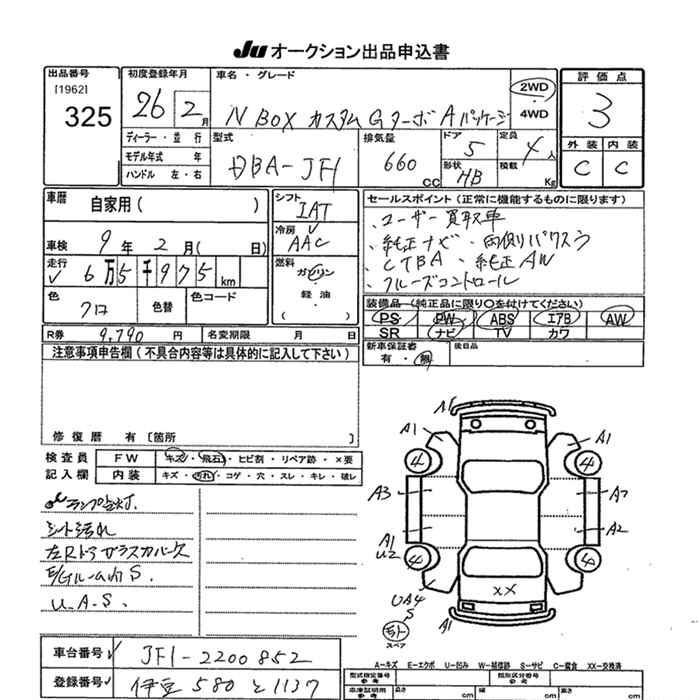 Ju オークション出品申込書
出品番号
[1962]
325
初度登録年月
26 2月
車名・グレード
N BOX カスタム Gターボ Aパッケージ
2WD
4WD
評価点
3
外装 内装
C C
ディーラー・並行
モデル年式 年
ハンドル 左・右
型式
DBA-JF1
排気量
660 cc
ドア
5
形状
HB
定員
4人
積載
Kg
車歴
自家用( )
車検 9年 2月( 日)
走行 6万5千975 km
色
クロ
色替
色コード
シフト
IAT
冷房
AAC
燃料
ガソリン
軽油
( )
セールスポイント(正常に機能するものに限ります)
、ユーザー買取車
、純正ナビ、両側パワスラ
、CTBA、純正AW
、クルーズコントロール
装備品(純正品に限り○を付けてください)
PS PW ABS エアB AW
SR ナビ TV カワ
新車保証書
有・無
後日品
R券 9,790 円 名変期限 月 日
注意事項申告欄(不具合内容等は具体的に記入して下さい)
修復歴 有 〔箇所 〕
検査員
記入欄
FW キズ・飛石・ヒビ割・リペア跡・×要
内装 キズ・汚れ・コゲ・穴・スレ・キレ・破レ
ランプ点灯.
シート汚れ
左Rドアガラスカバー欠
E/gルーム内S.
U.A.S.
A1
A1
A1
4
4
A3
A2
A1
U2
A2
4
4
XX
UA4
S
A1
スペア
A-キズ E-エクボ U-凹み W-補修跡 S-サビ C-腐食 XX-交換済
車台番号 JF1-2200852
登録番号 伊豆 580 と 1137
型式指定番号
類別区分番号
車庫証明用参考
長さ cm
幅 cm
高さ cm